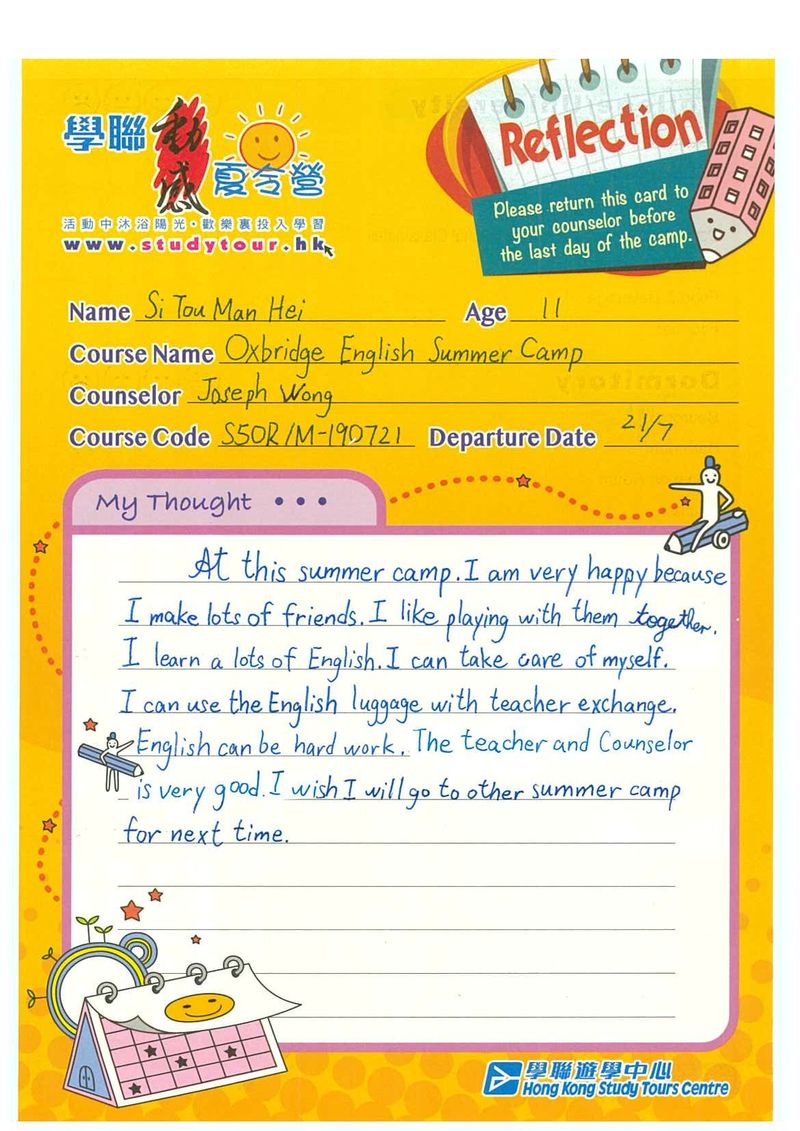 學聯動感夏令營
活動中沐浴陽光・歡樂裏投入學習
www.studytour.hk
Reflection
Please return this card to
your counselor before
the last day of the camp.
Name Si Tou Man Hei Age 11
Course Name Oxbridge English Summer Camp
Counselor Joseph Wong
Course Code S50R/M-190721 Departure Date 21/7
My Thought • • •
At this summer camp. I am very happy because
I make lots of friends. I like playing with them together.
I learn a lots of English. I can take care of myself.
I can use the English luggage with teacher exchange.
English can be hard work. The teacher and Counselor
is very good. I wish I will go to other summer camp
for next time.
學聯遊學中心
Hong Kong Study Tours Centre